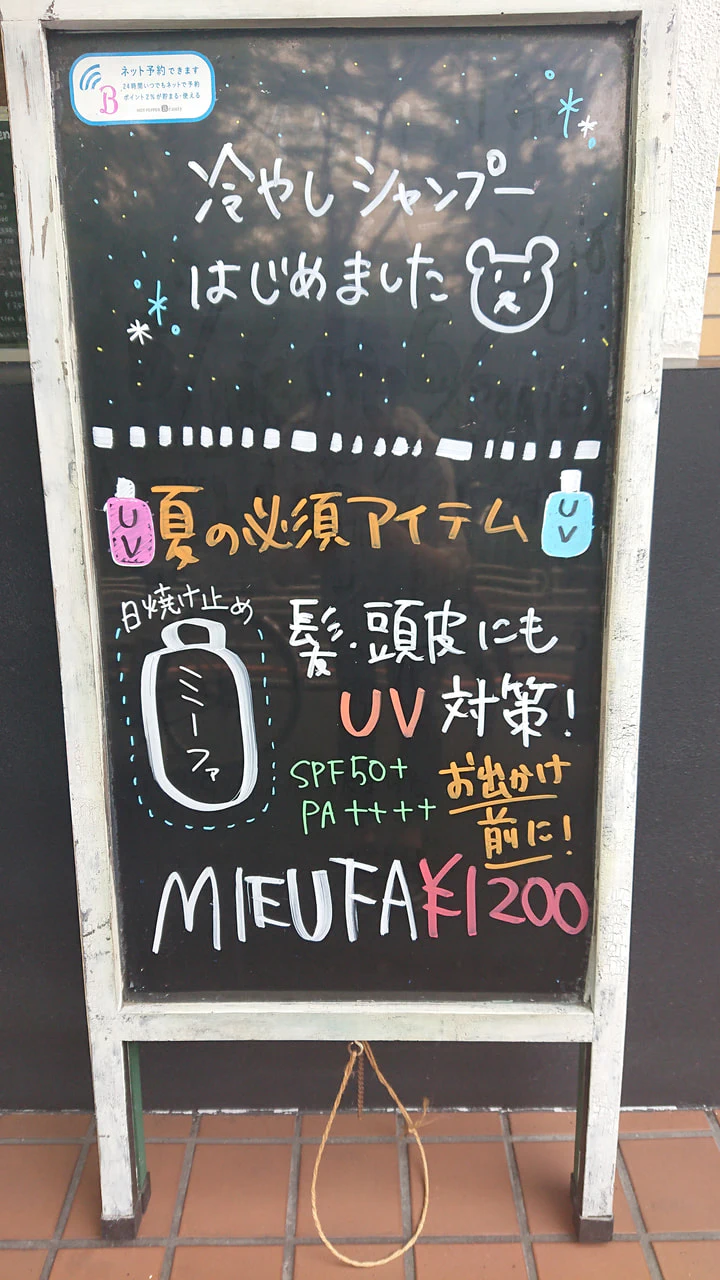 ネット予約できます
24時間いつでもネットで予約
ポイント2%が貯まる・使える
HOT PEPPER Beauty
冷やしシャンプー
はじめました
UV
夏の必須アイテム
UV
日焼け止め
ミーファ
髪・頭皮にも
UV対策!
SPF50+
PA++++
お出かけ
前に!
MIEUFA ¥1200